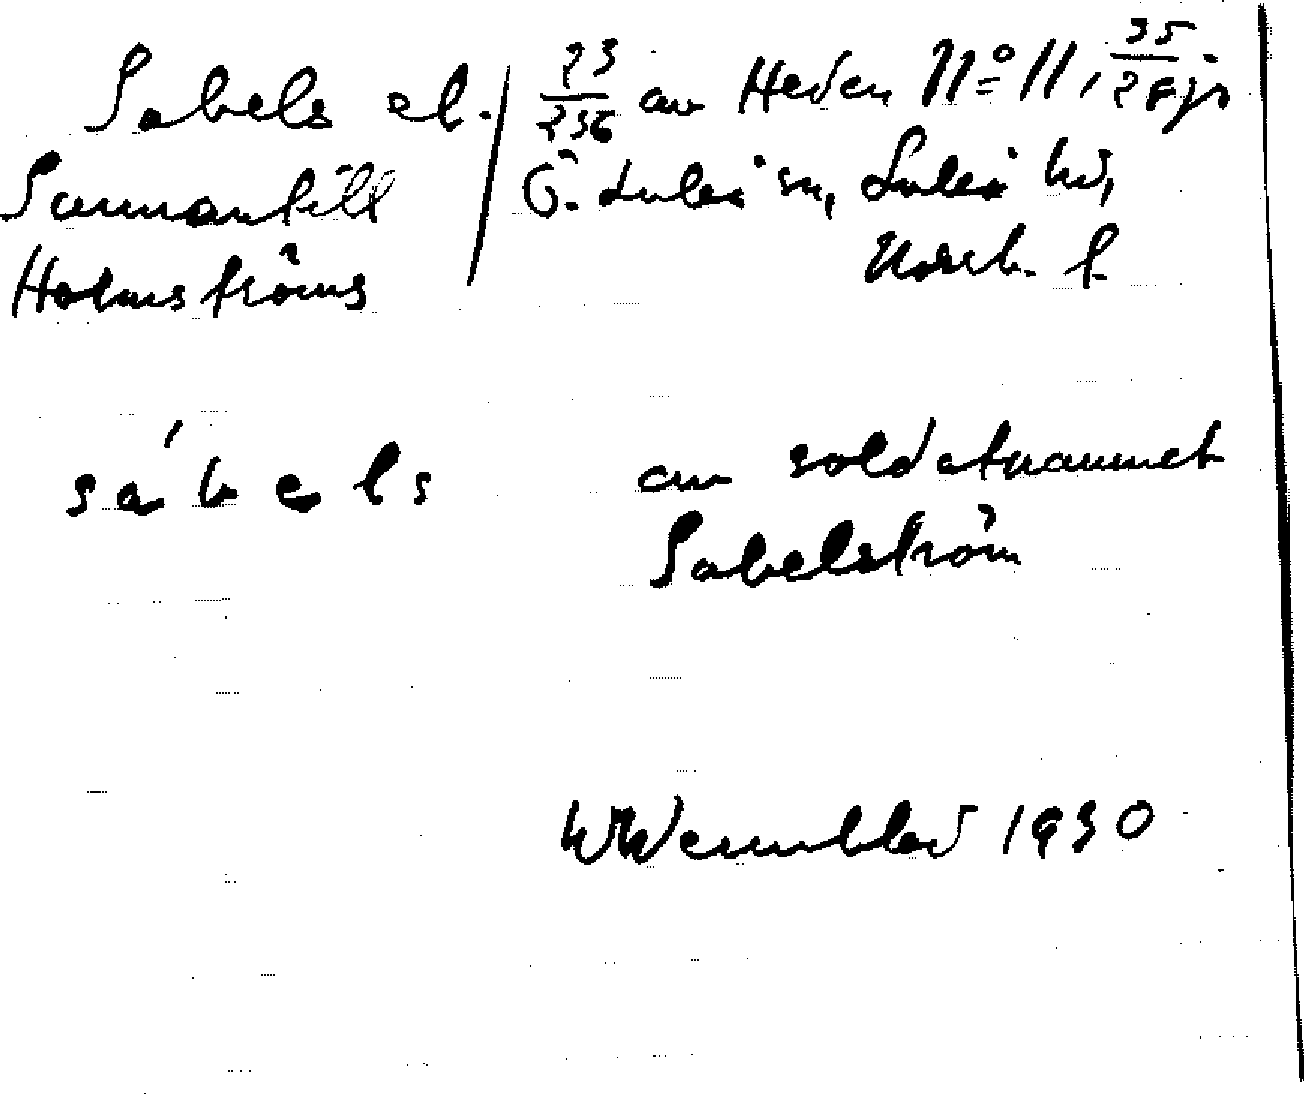 Sabels el. / 23/236 av Heden No 11, 35/28 jr
Sammantill / Ö. Luleå sn, Luleå hd,
Holmströms / Norrb. l.
sábels av soldatnamnet
Sabelström
W Wennblad 1930